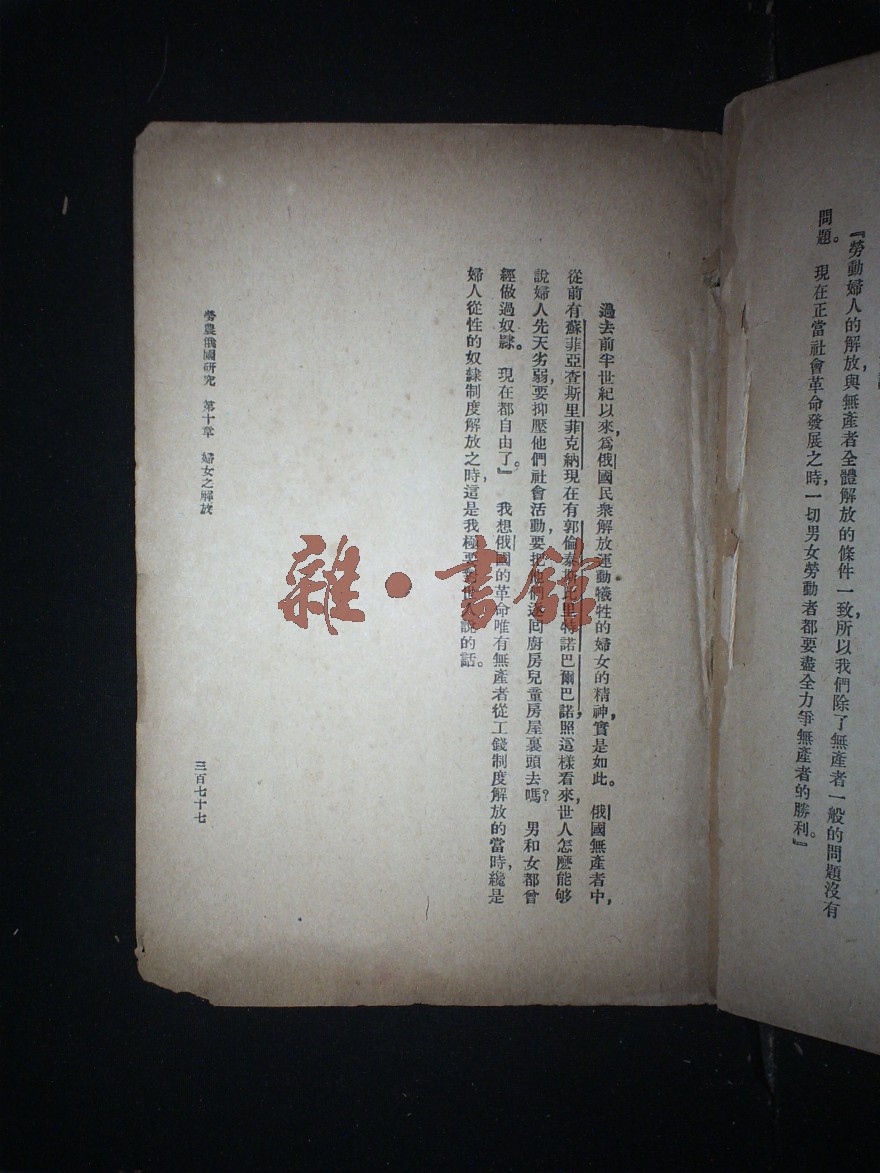 『勞動婦人的解放，與無產者全體解放的條件一致，所以我們除了無產者一般的問題沒有
問題。　現在正當社會革命發展之時，一切男女勞動者都要盡全力爭無產者的勝利。』
過去前半世紀以來，爲俄國民衆解放運動犧牲的婦女的精神，實是如此。　俄國無產者中，
從前有蘇菲亞查斯里菲克納現在有郭倫泰斯比里特諾巴爾巴諾，照這樣看來，世人怎麽能够
說婦人先天劣弱，要抑壓他們社會活動，要把他們逐囘廚房兒童房屋裏頭去嗎？　男和女都曾
經做過奴隸。　現在都自由了。』　我想俄國的革命唯有無產者從工錢制度解放的當時，纔是
婦人從性的奴隸制度解放之時，這是我極要對世人說的話。
勞農俄國研究　第十章　婦女之解放
三百七十七
雜·書館